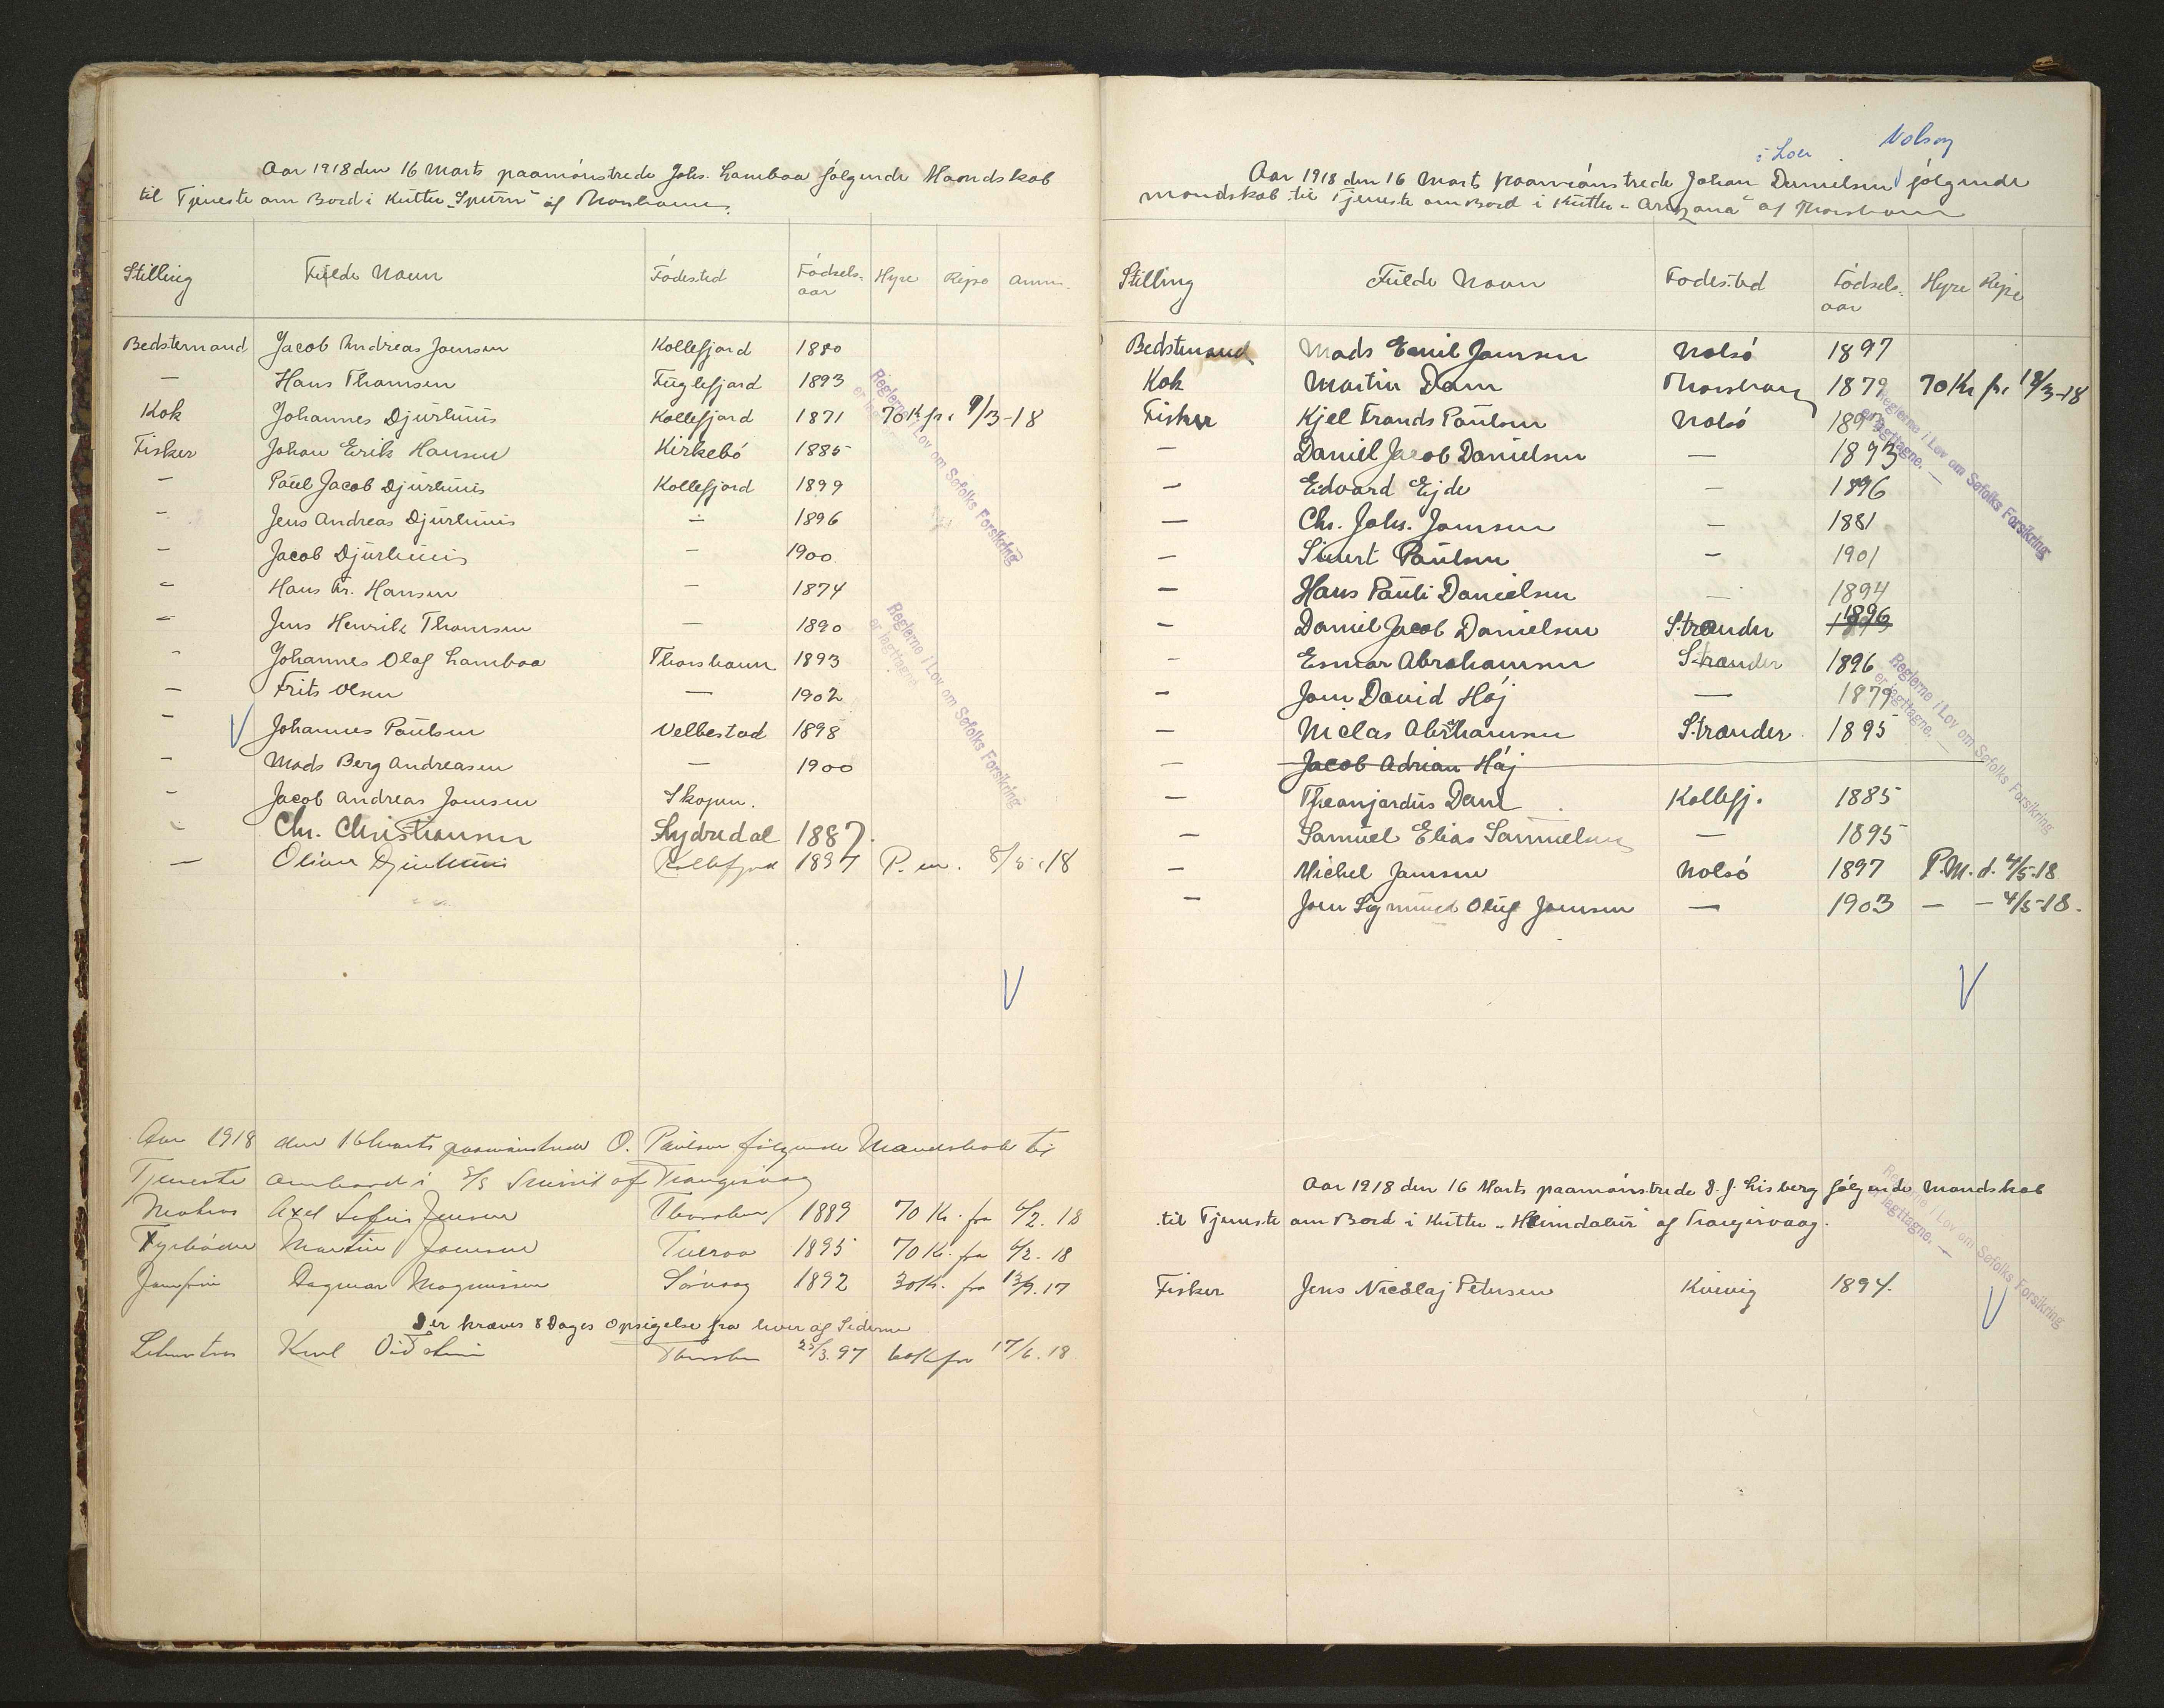 Aar 1918 den 16 Marts paamönstrede Johs. Lamboa følgende Mandskab
til Tjeneste om Bord i Kutter "Spurn" af Thorshavn.
Stilling Fulde Navn Födested Födsels-aar Hyre Rejse Anm.
Bedstemand Jacob Andreas Joensen Kollefjord 1880
— Hans Thomsen Fuglefjord 1893
Kok Johannes Djurhuus Kollefjord 1871 70 Kr fr. 9/3-18
Fisker Johan Erik Hansen Kirkebö 1885
— Poul Jacob Djurhuus Kollefjord 1899
— Jens Andreas Djurhuus — 1896
— Jacob Djurhuus — 1900
— Hans Kr. Hansen — 1874
— Jens Henrik Thomsen — 1890
— Johannes Olaf Lamboa Thorshavn 1893
— Frits Olsen — 1902
— Johannes Poulsen Velbestad 1898
— Mads Berg Andreasen — 1900
— Jacob Andreas Joensen Skopen.
— Chr. Christiansen Sydredal 1887.
— Oliver Djurhuus Kollefjord 1897 P. m. 8/5-18
Reglerne i Lov om Søfolks Forsikring
er iagttagne.
Reglerne i Lov om Søfolks Forsikring
er iagttagne.
Aar 1918 den 16 Marts paamönstrede O. Poulsen følgende Mandskab til
Tjeneste ombord i S/S Smiril af Trangisvaag
Matros Axel Sofus Jensen Thorshavn 1889 70 Kr. fra 6/2. 18
Fyrböder Martin Joensen Tveraa 1895 70 Kr. fra 4/2. 18
Jomfru Dagmar Magnussen Sörvaag 1892 30 Kr. fra 13/9. 17
Der kræves 8 Dages Opsigelse fra hver af Siderne
Letmatros Thorshavn 23/3. 97 60 Kr fra 17/6. 18
Nolsoy
Aar 1918 den 16 Marts paamönstrede Johan Danielsen følgende
mandskab til Tjeneste om Bord i Kutter "Arizona" af Thorshavn
Stilling Fulde Navn Födested Födsels-aar Hyre Rejse
Bedstemand Mads Emil Joensen Nolsö 1897
Kok Martin Dam Thorshavn 1879 70 Kr fr. 18/3-18
Fisker Kjel Tronds Poulsen Nolsö
— Daniel Jacob Danielsen — 1893
— Edvard Ejde — 1896
— Chr. Johs. Joensen — 1881
— Sivert Poulsen — 1901
— Hans Pauli Danielsen — 1894
— Daniel Jacob Danielsen Strænder 1896
— Esmar Abrahamsen Strænder 1896
— Joen David Höj — 1879
— Niclas Abrahamsen Strænder 1895
— Jacob Adrian Höj
— Dam Kollefj. 1885
— Samuel Elias Samuelsen — 1895
— Michel Joensen Nolsö 1897 P.M. d. 4/5-18
— Joen Sigmund Oluf Joensen — 1903 — — 4/5-18.
Reglerne i Lov om Søfolks Forsikring
er iagttagne. —
Reglerne i Lov om Søfolks Forsikring
er iagttagne. —
Aar 1918 den 16 Marts paamönstrede D. J. Lisberg følgende mandskab
til Tjeneste om Bord i Kutter "Heimdalur" af Trangisvaag.
Fisker Jens Nicolaj Petersen Kvivig 1894.
Reglerne i Lov om Søfolks Forsikring
er iagttagne. —